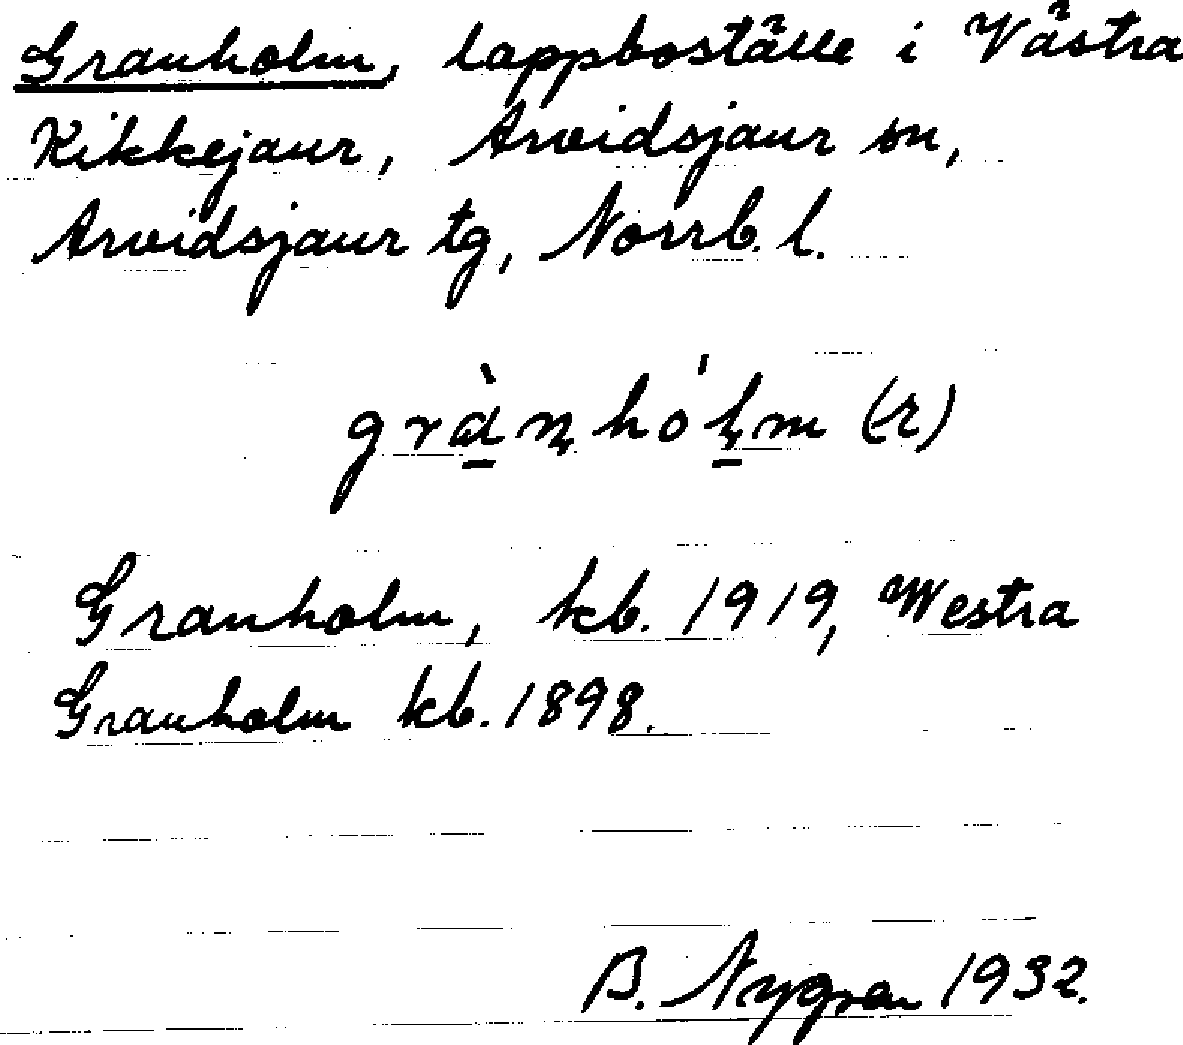 Granholm, lappboställe i Västra
Kikkejaur, Arvidsjaur sn,
Arvidsjaur tg, Norrb. l.
grànhól̥m (r)
Granholm, kb. 1919, Westra
Granholm kb. 1898.
B. Nygren 1932.